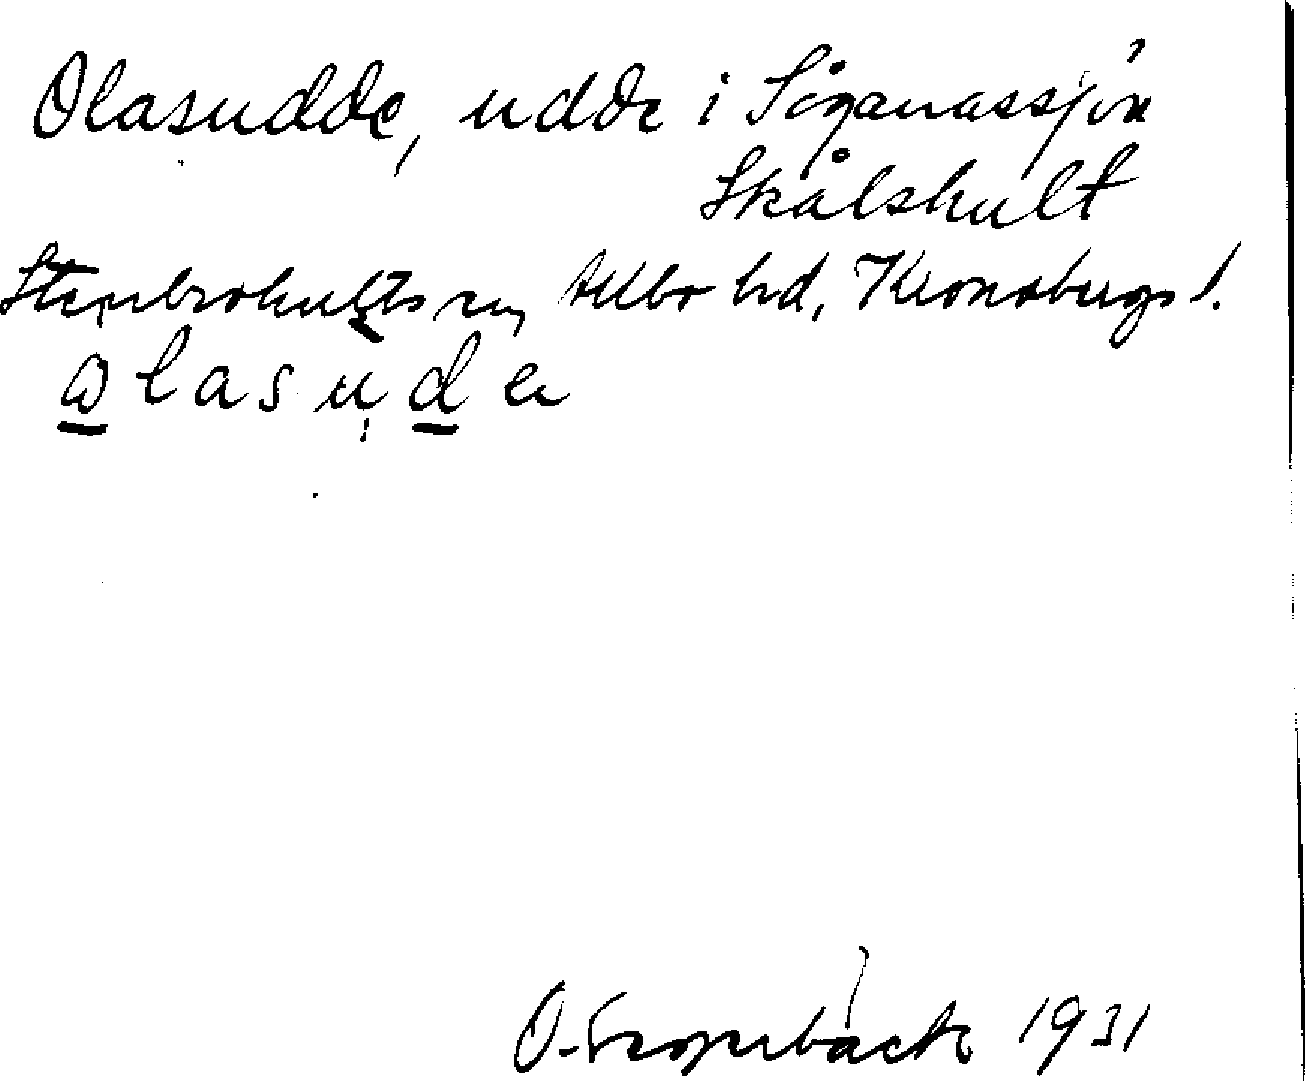 Olasudde, udde i Såganässjön
Skålshult
Stenbrohults sn, Allbo hd, Kronobergs l.
ɷlasude
O. 1931